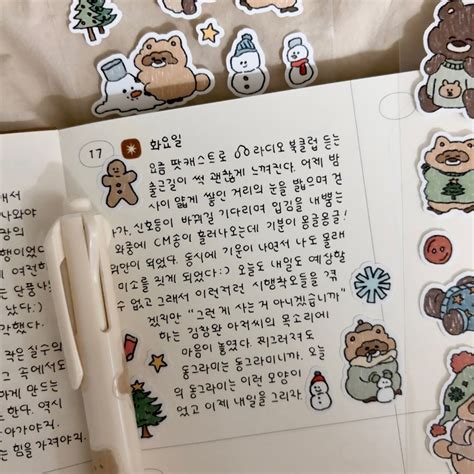 17
화요일
요즘 팟캐스트로 라디오 북클럽 듣는
출근길이 썩 괜찮게 느껴진다. 어제 밤
사이 얇게 쌓인 거리의 눈을 밟으며 걷
다가, 신호등이 바뀌길 기다리며 입김을 내뱉는
와중에 CM송이 흘러나오는데 기분이 몽글몽글!
위안이 되었다. 동시에 기운이 나면서 나도 몰래
미소를 짓게 되었다:) 오늘도 내일도 예상할
수 없고 그래서 이런저런 시행착오들을 겪
겠지만 "그런 게 사는 거 아니겠습니까"
하는 김창완 아저씨의 목소리에
마음이 놓였다. 찌그러져도
동그라미는 동그라미니까. 오늘
의 동그라미는 이런 모양이
었고 이제 내일을 그리자.
나와야
장의
행이었다
여전하
단풍나
린다.
간했다.
작은 실수의
그 속에서도
하게 만드는
는 한다. 역시
는 힘을 가져야지.